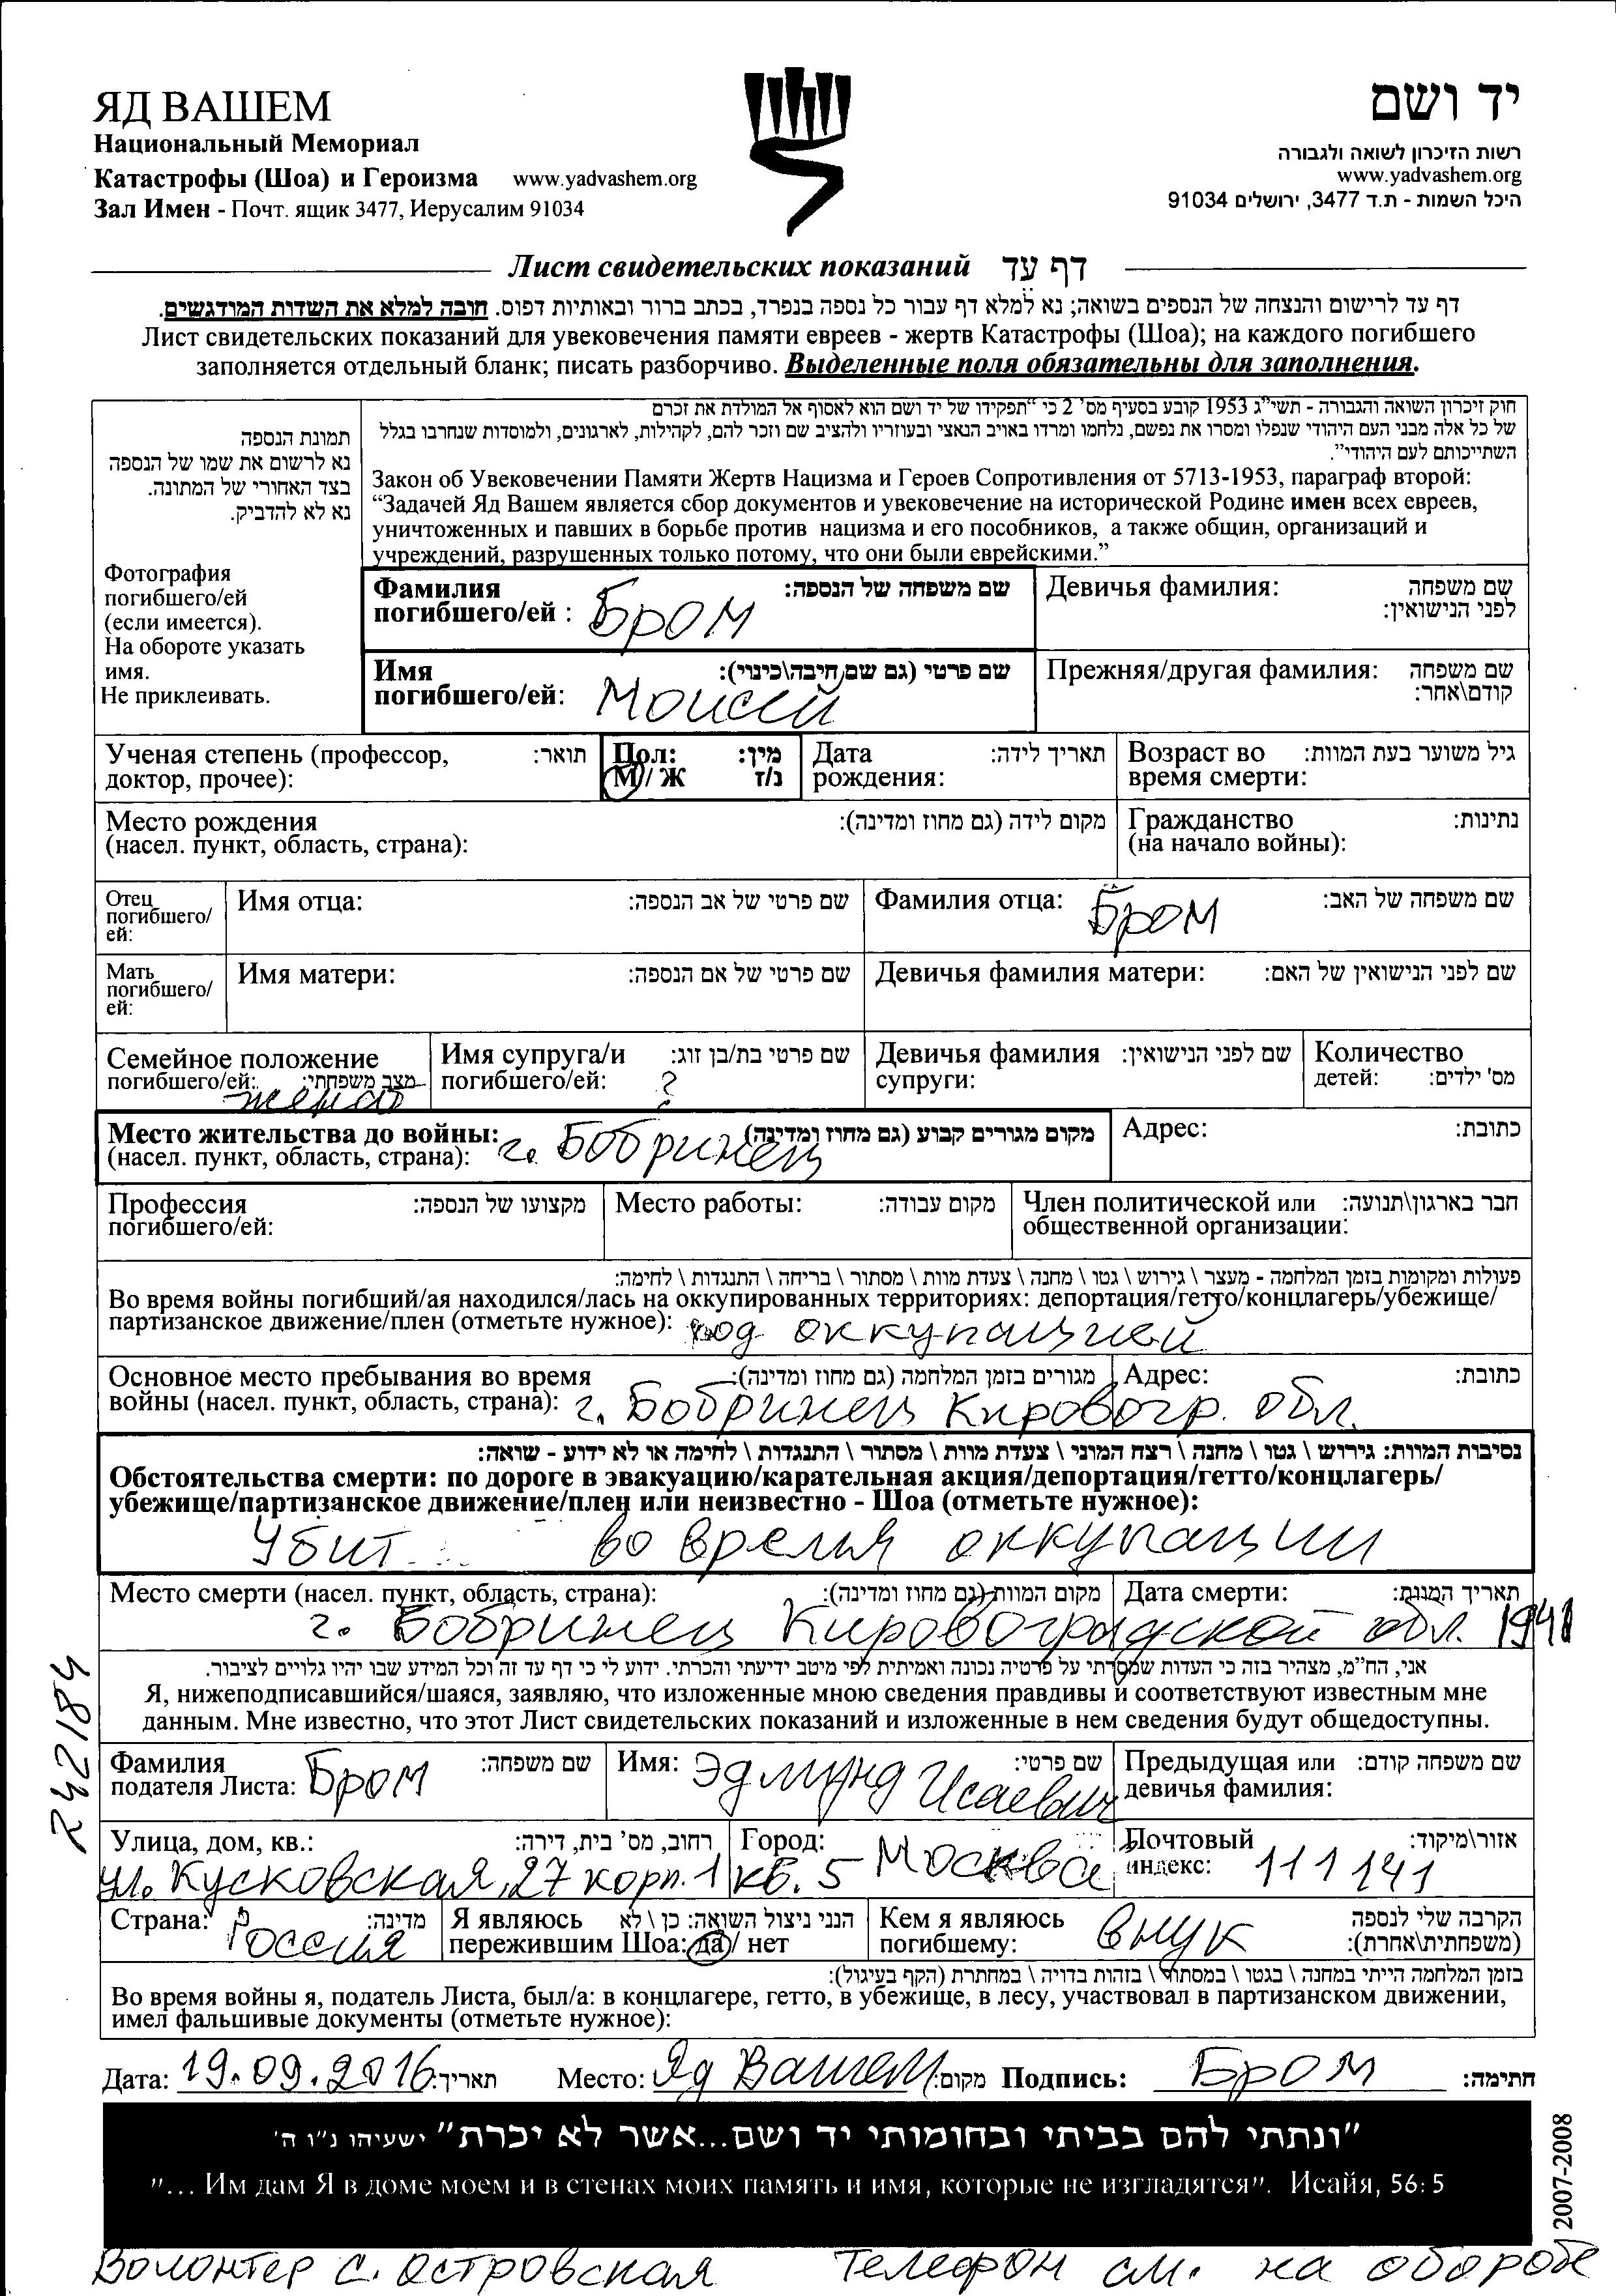 ЯД ВАШЕМ
יד ושם
Национальный Мемориал
Катастрофы (Шоа) и Героизма www.yadvashem.org
Зал Имен - Почт. ящик 3477, Иерусалим 91034
רשות הזיכרון לשואה ולגבורה
www.yadvashem.org
היכל השמות - ת.ד 3477, ירושלים 91034
Лист свидетельских показаний דף עד
דף עד לרישום והנצחה של הנספים בשואה; נא למלא דף עבור כל נספה בנפרד, בכתב ברור ובאותיות דפוס. חובה למלא את השדות המודגשים.
Лист свидетельских показаний для увековечения памяти евреев - жертв Катастрофы (Шоа); на каждого погибшего
заполняется отдельный бланк; писать разборчиво. Выделенные поля обязательны для заполнения.
תמונת הנספה
נא לרשום את שמו של הנספה
בצד האחורי של המתונה.
נא לא להדביק.
Фотография
погибшего/ей
(если имеется).
На обороте указать
имя.
Не приклеивать.
חוק זיכרון השואה והגבורה - תשי"ג 1953 קובע בסעיף מס' 2 כי "תפקידו של יד ושם הוא לאסוף אל המולדת את זכרם
של כל אלה מבני העם היהודי שנפלו ומסרו את נפשם, נלחמו ומרדו באויב הנאצי ובעוזריו ולהציב שם וזכר להם, לקהילות, לארגונים, ולמוסדות שנחרבו בגלל
השתייכותם לעם היהודי".
Закон об Увековечении Памяти Жертв Нацизма и Героев Сопротивления от 5713-1953, параграф второй:
“Задачей Яд Вашем является сбор документов и увековечение на исторической Родине имен всех евреев,
уничтоженных и павших в борьбе против нацизма и его пособников, а также общин, организаций и
учреждений, разрушенных только потому, что они были еврейскими.”
Фамилия שם משפחה של הנספה:
погибшего/ей : Бром
Девичья фамилия: שם משפחה
לפני הנישואין:
Имя שם פרטי (גם שם חיבה\כינוי):
погибшего/ей: Моисей
Прежняя/другая фамилия: שם משפחה
קודם\אחר:
Ученая степень (профессор, תואר:
доктор, прочее):
Пол: מין:
М / Ж ז/נ
Дата תאריך לידה:
рождения:
Возраст во גיל משוער בעת המוות:
время смерти:
Место рождения מקום לידה (גם מחוז ומדינה):
(насел. пункт, область, страна):
Гражданство נתינות:
(на начало войны):
Отец
погибшего/
ей:
Имя отца: שם פרטי של אב הנספה:
Фамилия отца: Бром שם משפחה של האב:
Мать
погибшего/
ей:
Имя матери: שם פרטי של אם הנספה:
Девичья фамилия матери: שם לפני הנישואין של האם:
Семейное положение
погибшего/ей: מצב משפחתי:
женат
Имя супруга/и שם פרטי בת/בן זוג:
погибшего/ей: ?
Девичья фамилия שם לפני הנישואין:
супруги:
Количество
детей: מס' ילדים:
Место жительства до войны: מקום מגורים קבוע (גם מחוז ומדינה)
(насел. пункт, область, страна): г. Бобринец
Адрес: כתובת:
Профессия מקצועו של הנספה:
погибшего/ей:
Место работы: מקום עבודה:
Член политической или חבר בארגון\תנועה:
общественной организации:
פעולות ומקומות בזמן המלחמה - מעצר \ גירוש \ גטו \ מחנה \ צעדת מוות \ מסתור \ בריחה \ התנגדות \ לחימה:
Во время войны погибший/ая находился/лась на оккупированных территориях: депортация/гетто/концлагерь/убежище/
партизанское движение/плен (отметьте нужное): под оккупацией
Основное место пребывания во время מגורים בזמן המלחמה (גם מחוז ומדינה):
войны (насел. пункт, область, страна): г. Бобринец Кировогр. обл.
Адрес: כתובת:
נסיבות המוות: גירוש \ גטו \ מחנה \ רצח המוני \ צעדת מוות \ מסתור \ התנגדות \ לחימה או לא ידוע - שואה:
Обстоятельства смерти: по дороге в эвакуацию/карательная акция/депортация/гетто/концлагерь/
убежище/партизанское движение/плен или неизвестно - Шоа (отметьте нужное):
Убит во время оккупации
Место смерти (насел. пункт, область, страна): מקום המוות (גם מחוז ומדינה):
Дата смерти: תאריך המוות:
г. Бобринец Кировоградской обл. 1941
אני, הח"מ, מצהיר בזה כי העדות שמסרתי על פרטיה נכונה ואמיתית לפי מיטב ידיעתי והכרתי. ידוע לי כי דף עד זה וכל המידע שבו יהיו גלויים לציבור.
Я, нижеподписавшийся/шаяся, заявляю, что изложенные мною сведения правдивы и соответствуют известным мне
данным. Мне известно, что этот Лист свидетельских показаний и изложенные в нем сведения будут общедоступны.
Фамилия שם משפחה:
подателя Листа: Бром
Имя: שם פרטי:
Эдмунд Исаевич
Предыдущая или שם משפחה קודם:
девичья фамилия:
Улица, дом, кв.: רחוב, מס' בית, דירה:
ул. Кусковская, 27 корп. 1 кв. 5
Город: Москва
Почтовый אזור\מיקוד:
индекс: 111141
Страна: מדינה:
Россия
Я являюсь הנני ניצול השואה: כן \ לא
пережившим Шоа: да / нет
Кем я являюсь הקרבה שלי לנספה
погибшему: внук (משפחתית\אחרת):
בזמן המלחמה הייתי במחנה \ בגטו \ במסתור \ בזהות בדויה \ במחתרת (הקף בעיגול):
Во время войны я, податель Листа, был/а: в концлагере, гетто, в убежище, в лесу, участвовал в партизанском движении,
имел фальшивые документы (отметьте нужное):
Дата: 19.09.2016 תאריך: Место: Яд Вашем מקום: Подпись: Бром חתימה:
"ונתתי להם בביתי ובחומותי יד ושם...אשר לא יכרת" ישעיהו נ"ו ה'
"... Им дам Я в доме моем и в стенах моих память и имя, которые не изгладятся". Исайя, 56: 5
Волонтер С. Островская Телефон см. на обороте
R42184
2007-2008